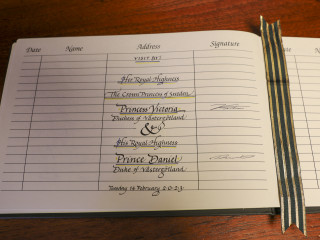 Date Name Address Signature
VISIT BY
Her Royal Highness
The Crown Princess of Sweden
Princess Victoria
Duchess of Västergötland
&
His Royal Highness
Prince Daniel
Duke of Västergötland
Tuesday 14 February 2023
Date Name